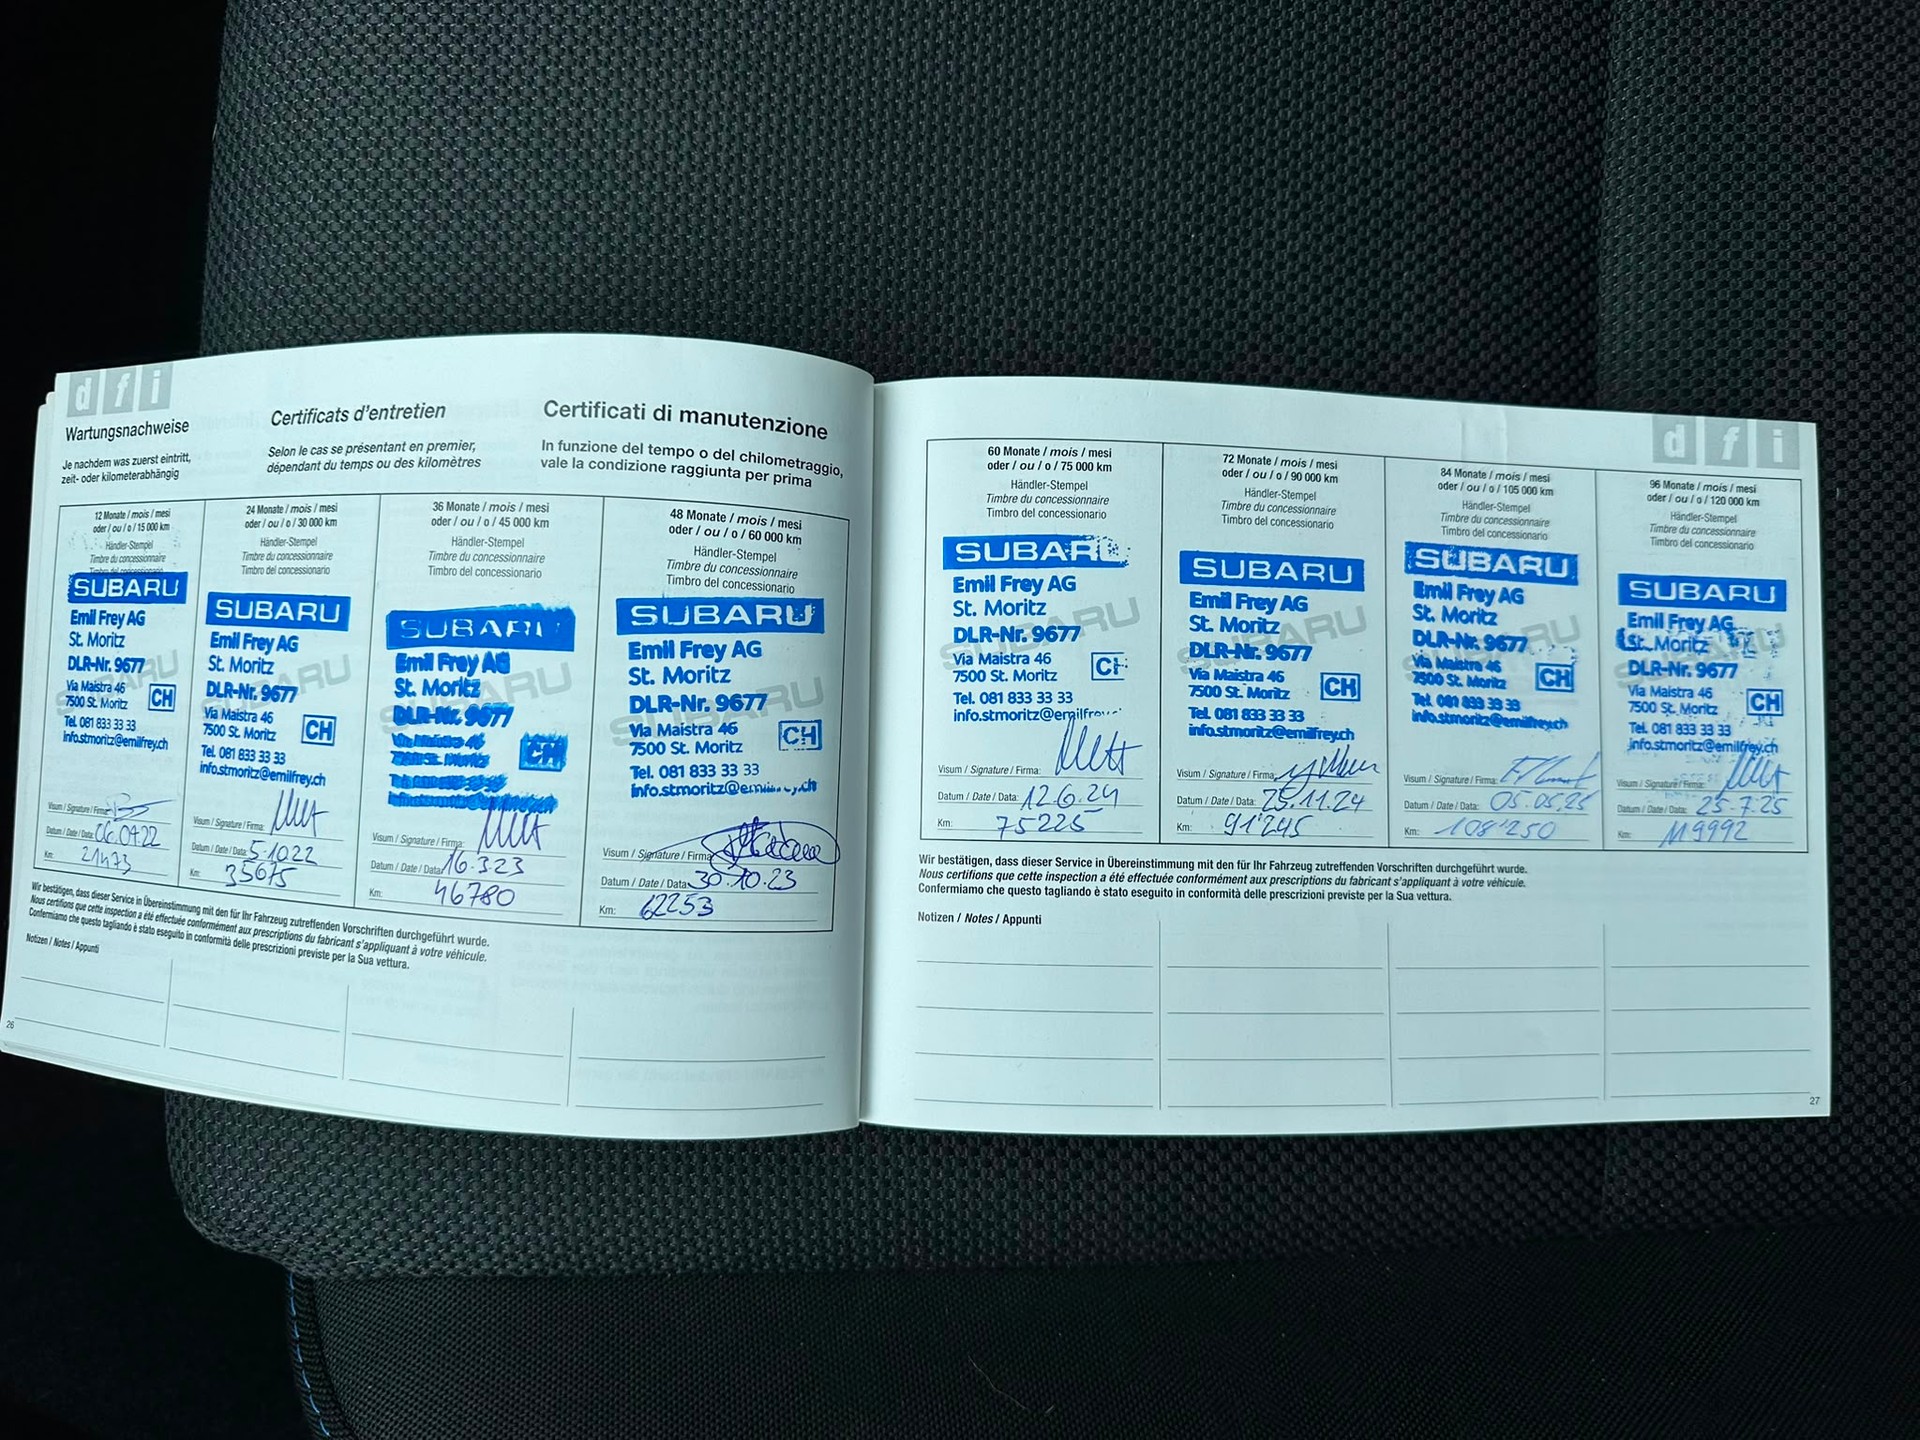 d f i
Wartungsnachweise
Je nachdem was zuerst eintritt,
zeit- oder kilometerabhängig
Certificats d'entretien
Selon le cas se présentant en premier,
dépendant du temps ou des kilomètres
Certificati di manutenzione
In funzione del tempo o del chilometraggio,
vale la condizione raggiunta per prima
12 Monate / mois / mesi
oder / ou / o / 15 000 km
Händler-Stempel
Timbre du concessionnaire
Timbro del concessionario
SUBARU
Emil Frey AG
St. Moritz
DLR-Nr. 9677
Via Maistra 46
7500 St. Moritz
CH
Tel. 081 833 33 33
info.stmoritz@emilfrey.ch
Visum / Signature / Firma:
Datum / Date / Data: 06.07.22
Km: 21473
24 Monate / mois / mesi
oder / ou / o / 30 000 km
Händler-Stempel
Timbre du concessionnaire
Timbro del concessionario
SUBARU
Emil Frey AG
St. Moritz
DLR-Nr. 9677
Via Maistra 46
7500 St. Moritz
CH
Tel. 081 833 33 33
info.stmoritz@emilfrey.ch
Visum / Signature / Firma:
Datum / Date / Data: 5.10.22
Km: 35675
36 Monate / mois / mesi
oder / ou / o / 45 000 km
Händler-Stempel
Timbre du concessionnaire
Timbro del concessionario
SUBARU
Emil Frey AG
St. Moritz
DLR-Nr. 9677
Via Maistra 46
7500 St. Moritz
CH
Visum / Signature / Firma:
Datum / Date / Data: 16.3.23
Km: 46780
48 Monate / mois / mesi
oder / ou / o / 60 000 km
Händler-Stempel
Timbre du concessionnaire
Timbro del concessionario
SUBARU
Emil Frey AG
St. Moritz
DLR-Nr. 9677
Via Maistra 46
7500 St. Moritz
CH
Tel. 081 833 33 33
info.stmoritz@emilfrey.ch
Visum / Signature / Firma:
Datum / Date / Data: 30.10.23
Km: 62253
Wir bestätigen, dass dieser Service in Übereinstimmung mit den für Ihr Fahrzeug zutreffenden Vorschriften durchgeführt wurde.
Nous certifions que cette inspection a été effectuée conformément aux prescriptions du fabricant s'appliquant à votre véhicule.
Confermiamo che questo tagliando è stato eseguito in conformità delle prescrizioni previste per la Sua vettura.
Notizen / Notes / Appunti
26
d f i
60 Monate / mois / mesi
oder / ou / o / 75 000 km
Händler-Stempel
Timbre du concessionnaire
Timbro del concessionario
SUBARU
Emil Frey AG
St. Moritz
DLR-Nr. 9677
Via Maistra 46
7500 St. Moritz
CH
Tel. 081 833 33 33
info.stmoritz@emilfrey
Visum / Signature / Firma:
Datum / Date / Data: 12.6.24
Km: 75225
72 Monate / mois / mesi
oder / ou / o / 90 000 km
Händler-Stempel
Timbre du concessionnaire
Timbro del concessionario
SUBARU
Emil Frey AG
St. Moritz
DLR-Nr. 9677
Via Maistra 46
7500 St. Moritz
CH
Tel. 081 833 33 33
info.stmoritz@emilfrey.ch
Visum / Signature / Firma:
Datum / Date / Data: 25.11.24
Km: 91'245
84 Monate / mois / mesi
oder / ou / o / 105 000 km
Händler-Stempel
Timbre du concessionnaire
Timbro del concessionario
SUBARU
Emil Frey AG
St. Moritz
DLR-Nr. 9677
Via Maistra 46
7500 St. Moritz
CH
Tel. 081 833 33 33
info.stmoritz@emilfrey.ch
Visum / Signature / Firma:
Datum / Date / Data: 05.05.25
Km: 108'250
96 Monate / mois / mesi
oder / ou / o / 120 000 km
Händler-Stempel
Timbre du concessionnaire
Timbro del concessionario
SUBARU
Emil Frey AG
St. Moritz
DLR-Nr. 9677
Via Maistra 46
7500 St. Moritz
CH
Tel. 081 833 33 33
info.stmoritz@emilfrey.ch
Visum / Signature / Firma:
Datum / Date / Data: 25.7.25
Km: 119992
Wir bestätigen, dass dieser Service in Übereinstimmung mit den für Ihr Fahrzeug zutreffenden Vorschriften durchgeführt wurde.
Nous certifions que cette inspection a été effectuée conformément aux prescriptions du fabricant s'appliquant à votre véhicule.
Confermiamo che questo tagliando è stato eseguito in conformità delle prescrizioni previste per la Sua vettura.
Notizen / Notes / Appunti
27